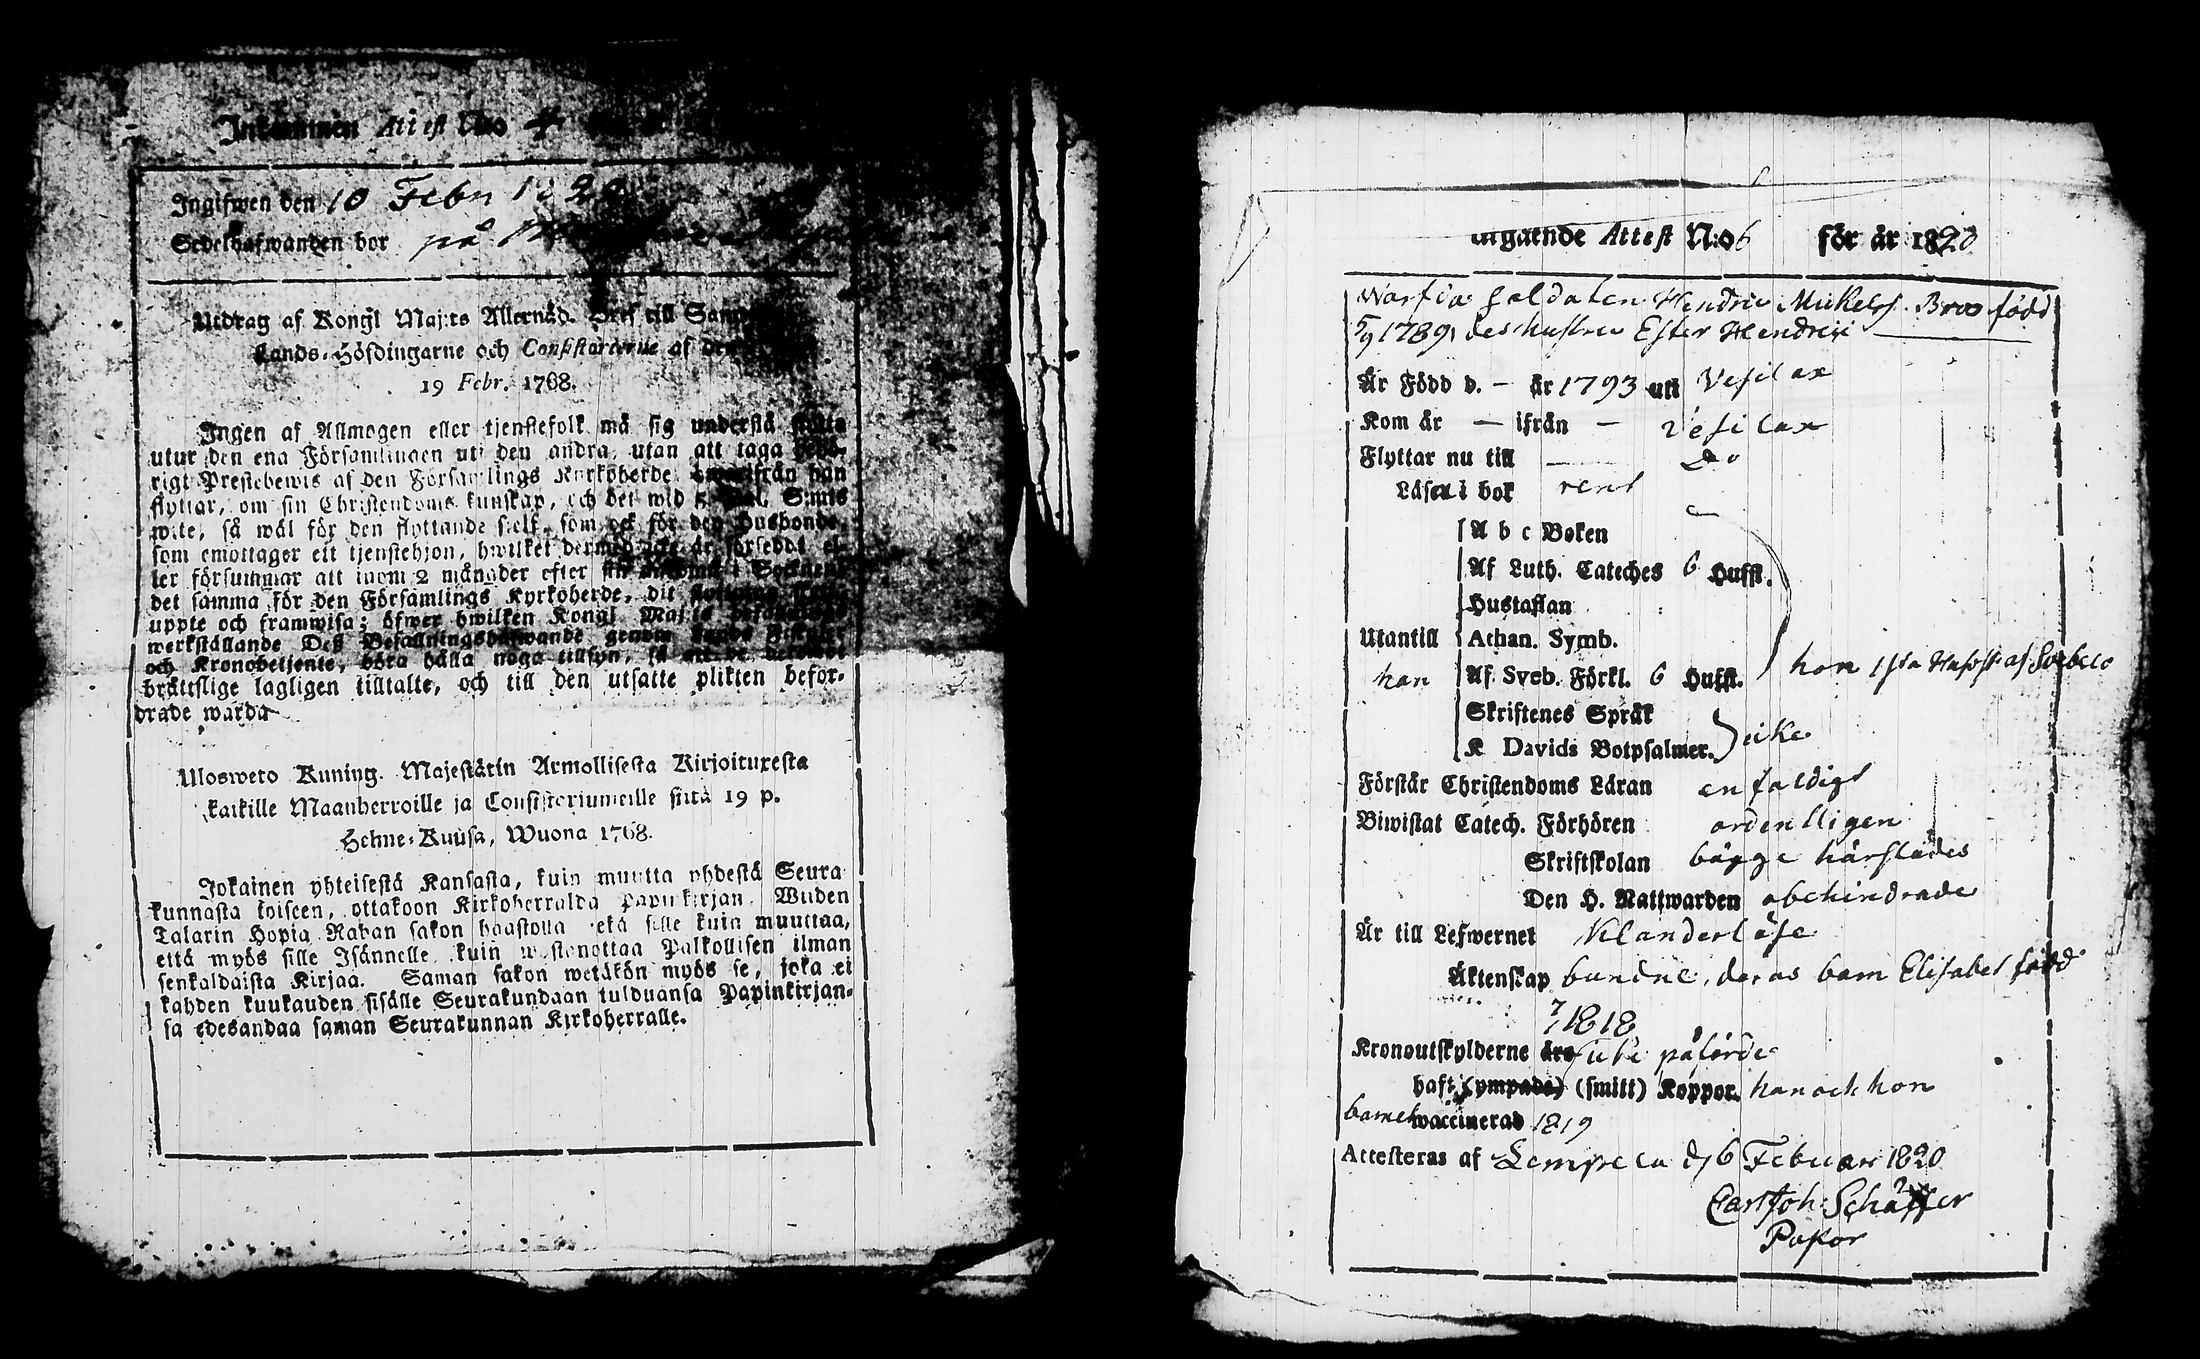 Inkommen Attest No 4
Ingifwen den 10 Febr 1820
Sedelhafwanden bor på
Utdrag af Kongl Maj:ts Allernåd. Bref till Samt
Lands-Höfdingarne och Consistorierne af den
19 Febr. 1768.
Ingen af Allmogen eller tjenstefolk må sig understå flytta
utur den ena Församlingen uti den andra, utan att taga behö-
rigt Prestebewis af den Församlings Kyrkoherde, hwarifrån han
flyttar, om sin Christendoms kunskap, och det wid 5 Dal. S:mts
wite, så wäl för den flyttande sielf, som ock för den Husbonde,
som emottager ett tjenstehjon, hwilket dermed icke är försedt el-
ler försummar att inom 2 månader efter sin ankomst i Socknen
det samma för den Församlings Kyrkoherde, dit flyttning skett,
uppte och framwisa; öfwer hwilken Kongl Maj:ts befallnings
werkställande Deß Befallningshafwande genom Lands Fiskaler
och Kronobetjente, böra hålla noga tillsyn, så att de
brättslige lagligen tilltalte, och till den utsatte plikten befor-
drade warda
Ulosweto Kuning. Majestätin Armollisesta Kirjoituxesta
kaikille Maanherroille ja Consistoriumeille siitä 19 p.
Helme-Kuusa, Wuona 1768.
Jokainen yhteisestä Kansasta, kuin muutta yhdestä Seura
kunnasta toiseen, ottakoon Kirkoherralda papinkirjan Wiiden
Talarin Hopia Rahan sakon haastolla sekä sille kuin muuttaa,
että myös sille Isännelle kuin wastanottaa Palkollisen ilman
senkaldaista Kirjaa. Saman sakon wetäkön myös se, joka ei
kahden kuukauden sisälle Seurakundaan tulduansa Papinkirjan-
sa edesandaa saman Seurakunnan Kirkoherralle.
utgående Attest N:o 6 för år 1820
Warfda Soldaten Hendric Mickelss. Broo född
5/9 1789, des hustru Ester Hendrici
År Född d. — år 1793 uti Vesilax
Kom år — ifrån — Vesilax
Flyttar nu till — Do
Läser i bok rent
A b c Boken
Af Luth. Cateches 6 Hufst.
Hustaflan
Utantill Athan. Symb.
han Af Sveb. Förkl. 6 Hufst. hon 1sta Hufvst. af Svebelo
Skriftenes Språk
K Davids Botpsalmer. icke
Förstår Christendoms Läran enfaldigt
Biwistat Catech. Förhören ordentligen
Skriftskolan bägge härstädes
Den H. Nattwarden obehindrade
Är till Lefwernet Klanderlöse
Äktenskap bundne, deras barn Elisabet född
7/7 1818
Kronoutskylderne äro icke påförde
haft (ympade) (smitt) Koppor. han och hon
barnet waccinerad 1819
Attesteras af Lempiela d. 6 Februari 1820
Carl Joh: Schäffer
Pastor